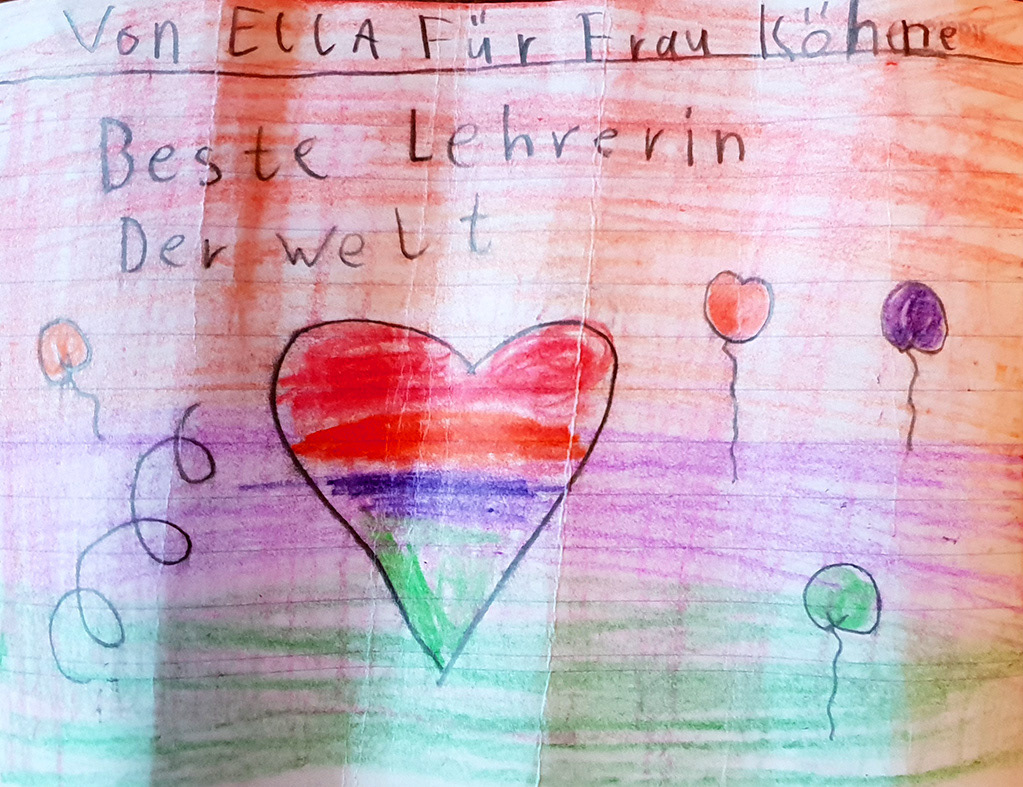 Von ELLA Für Frau Köhne
Beste Lehrerin
Der welt